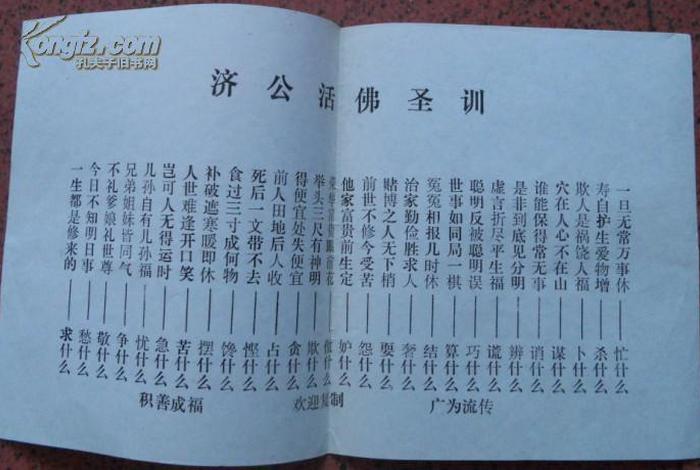 Kongfz.com
孔夫子旧书网
济公活佛圣训
一生都是修来的——求什么
今日不知明日事——愁什么
不礼爹娘礼世尊——敬什么
兄弟姐妹皆同气——争什么
儿孙自有儿孙福——忧什么
岂可人无得运时——急什么
人世难逢开口笑——苦什么
补破遮寒暖即休——摆什么
食过三寸成何物——馋什么
死后一文带不去——悭什么
前人田地后人收——占什么
得便宜处失便宜——贪什么
举头三尺有神明——欺什么
富贵眼前花——什么
他家富贵前生定——妒什么
前世不修今受苦——怨什么
赌博之人无下梢——耍什么
治家勤俭胜求人——奢什么
冤冤相报几时休——结什么
世事如同局一棋——算什么
聪明反被聪明误——巧什么
虚言折尽平生福——谎什么
是非到底见分明——辨什么
谁能保得常无事——诮什么
穴在人心不在山——谋什么
欺人是祸饶人福——卜什么
寿自护生爱物增——杀什么
一旦无常万事休——忙什么
积善成福 欢迎复制 广为流传